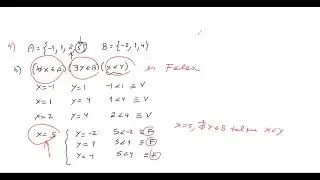 4) A = {-1, 1, 2, 5} B = {-2, 1, 4}
b) (∀x∈A) (∃y∈B) (x<y) es Falsa
x=-1 y=1 -1<1 ≡ V
x=1 y=4 1<4 ≡ V
x=2 y=4 2<4 ≡ V
x=5 { y=-2 5<-2 ≡ F
y=1 5<1 ≡ F
y=4 5<4 ≡ F
x=5, ∄y∈B tal que x<y